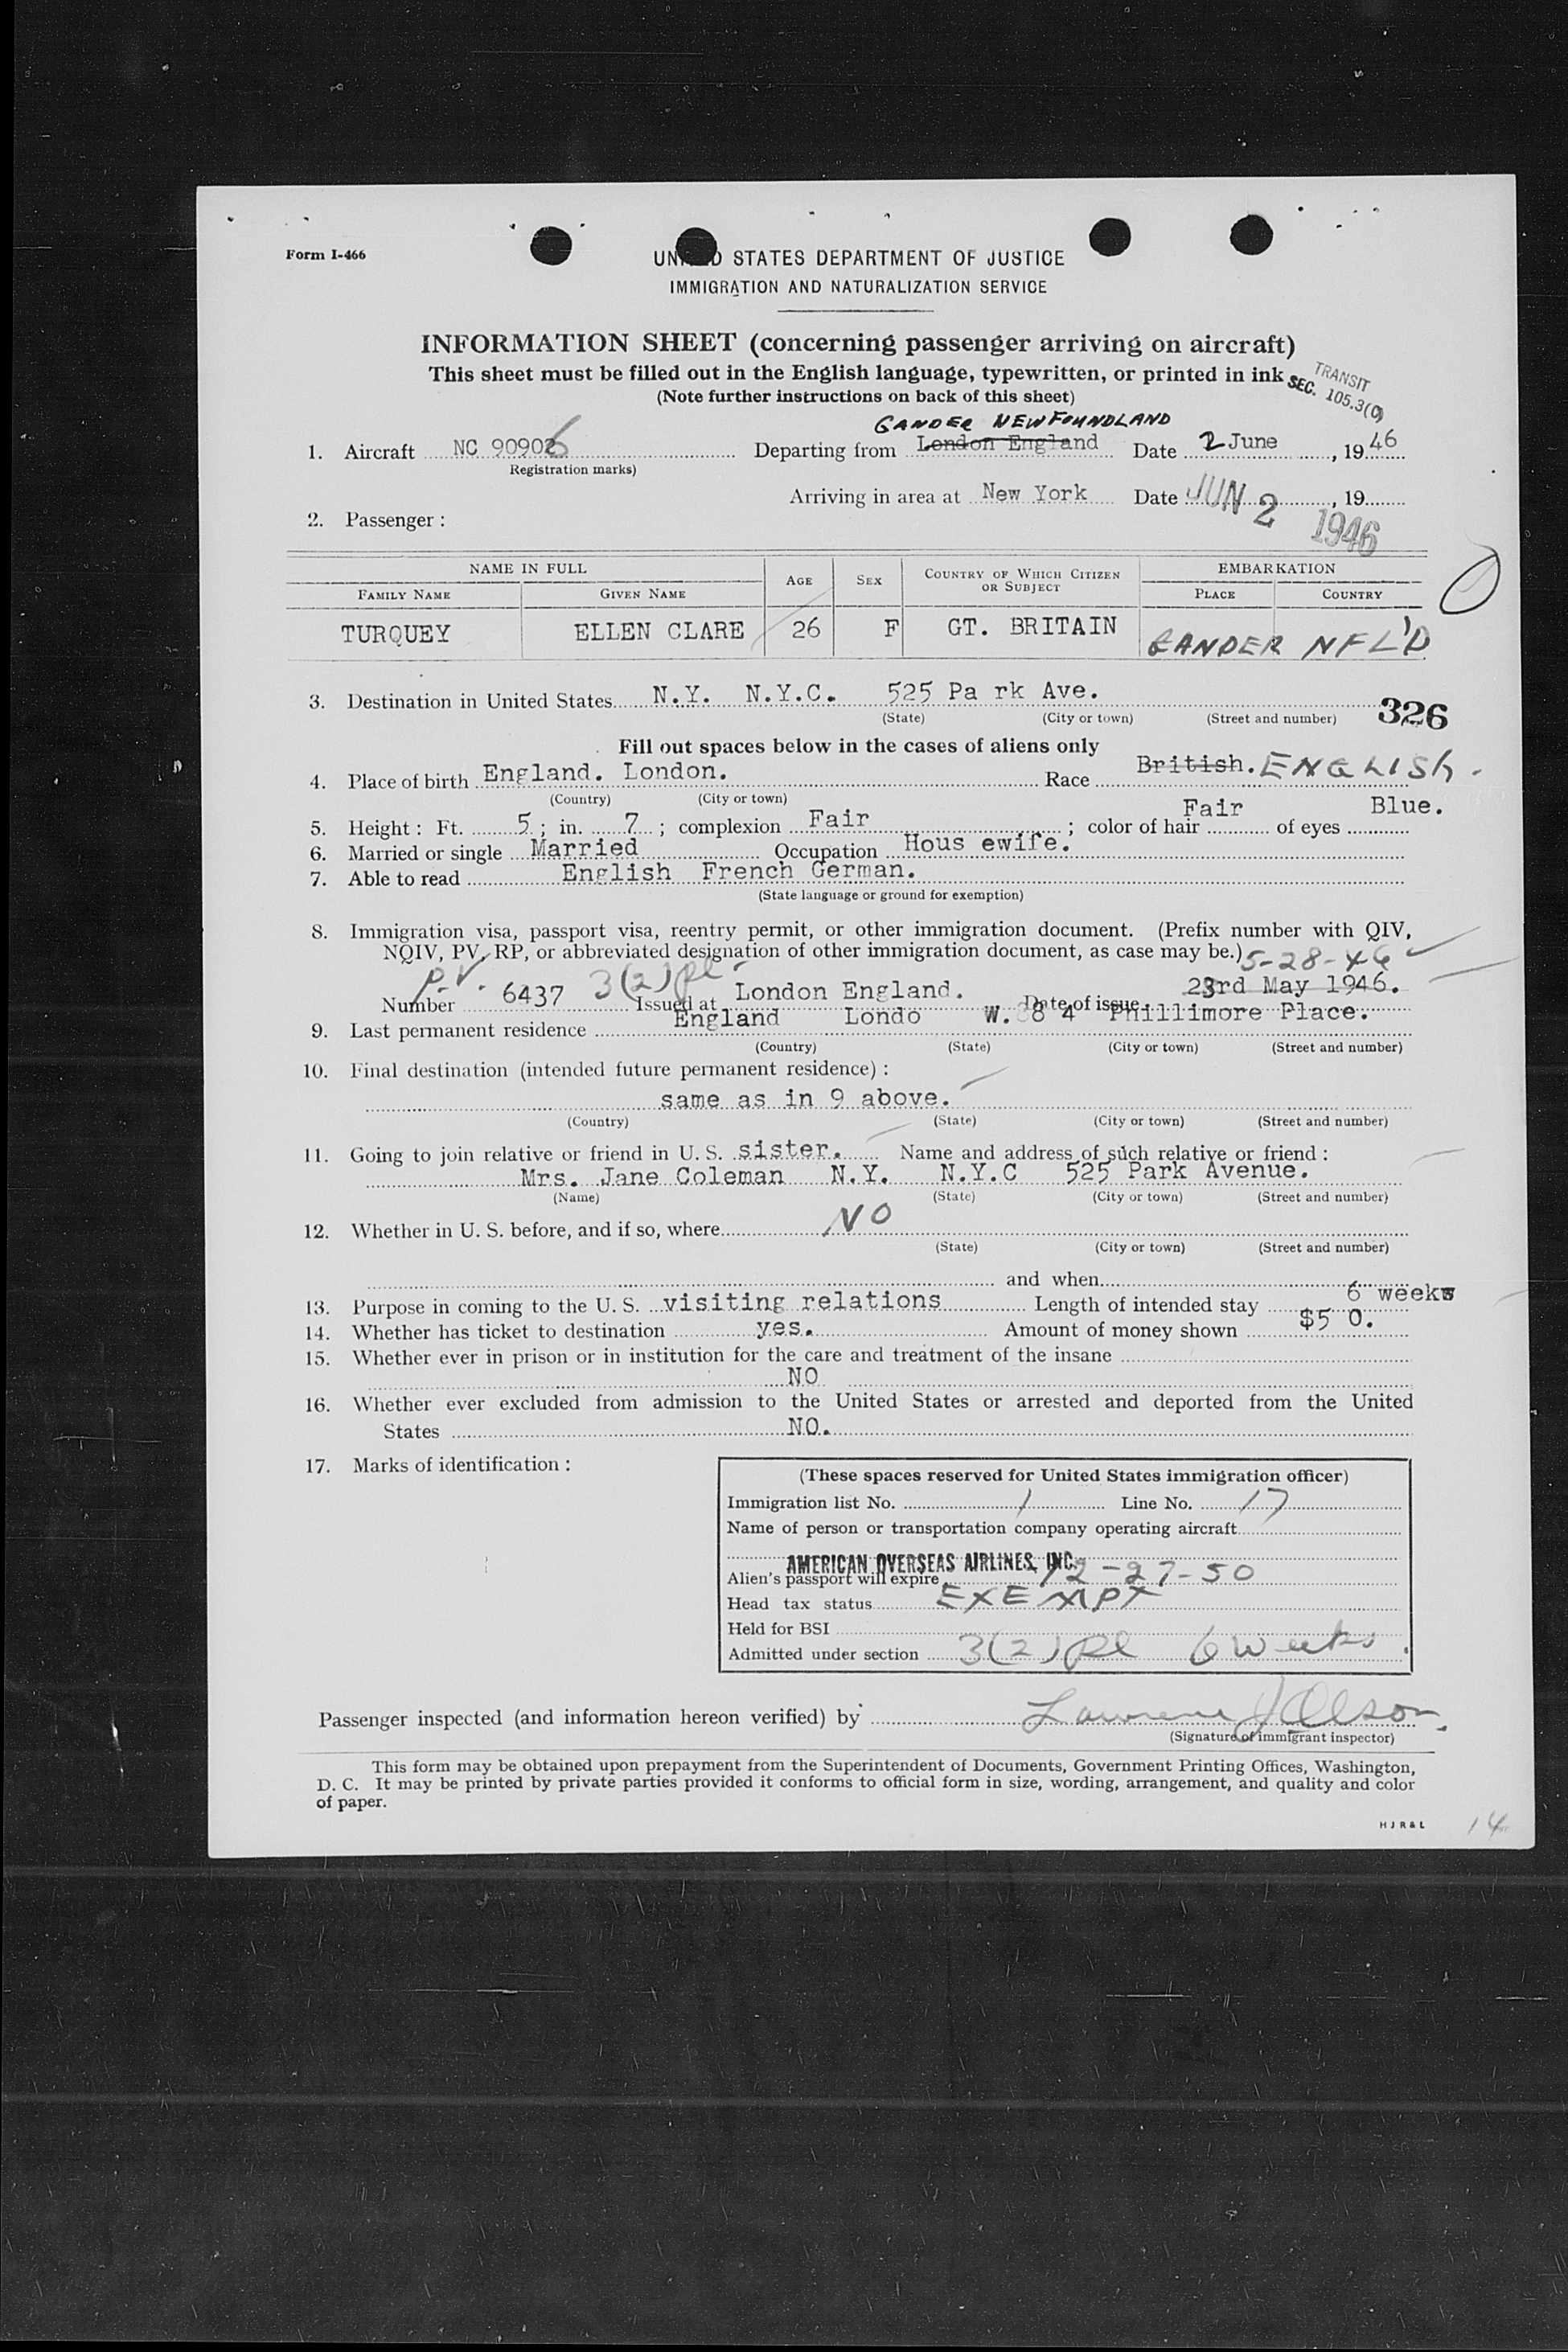 Form I-466
UNITED STATES DEPARTMENT OF JUSTICE
IMMIGRATION AND NATURALIZATION SERVICE
INFORMATION SHEET (concerning passenger arriving on aircraft)
This sheet must be filled out in the English language, typewritten, or printed in ink
(Note further instructions on back of this sheet)
TRANSIT
SEC. 105.3(c)
GANDER NEWFOUNDLAND
1. Aircraft NC 90906 Departing from London England Date 2 June, 1946
(Registration marks)
Arriving in area at New York Date JUN 2 1946, 19
2. Passenger:
NAME IN FULL AGE SEX COUNTRY OF WHICH CITIZEN OR SUBJECT EMBARKATION
FAMILY NAME GIVEN NAME PLACE COUNTRY
TURQUEY ELLEN CLARE 26 F GT. BRITAIN GANDER NFL'D
3. Destination in United States N.Y. N.Y.C. 525 Pa rk Ave.
(State) (City or town) (Street and number) 326
Fill out spaces below in the cases of aliens only
4. Place of birth England. London. Race British. ENGLISH.
(Country) (City or town)
5. Height: Ft. 5; in. 7; complexion Fair; color of hair Fair of eyes Blue.
6. Married or single Married Occupation Hous ewife.
7. Able to read English French German.
(State language or ground for exemption)
8. Immigration visa, passport visa, reentry permit, or other immigration document. (Prefix number with QIV,
NQIV, PV, RP, or abbreviated designation of other immigration document, as case may be.) 5-28-46
P.V.
Number 6437 3(2) Issued at London England. Date of issue 23rd May 1946.
9. Last permanent residence England Londo W. 8 4 Phillimore Place.
(Country) (State) (City or town) (Street and number)
10. Final destination (intended future permanent residence):
same as in 9 above.
(Country) (State) (City or town) (Street and number)
11. Going to join relative or friend in U. S. sister. Name and address of such relative or friend:
Mrs. Jane Coleman N.Y. N.Y.C 525 Park Avenue.
(Name) (State) (City or town) (Street and number)
12. Whether in U. S. before, and if so, where NO
(State) (City or town) (Street and number)
and when
13. Purpose in coming to the U. S. visiting relations Length of intended stay 6 weeks
14. Whether has ticket to destination yes. Amount of money shown $5 0.
15. Whether ever in prison or in institution for the care and treatment of the insane
NO
16. Whether ever excluded from admission to the United States or arrested and deported from the United
States NO.
17. Marks of identification:
(These spaces reserved for United States immigration officer)
Immigration list No. 1 Line No. 17
Name of person or transportation company operating aircraft
AMERICAN OVERSEAS AIRLINES, INC.
Alien's passport will expire 12-27-50
Head tax status EXEMPT
Held for BSI
Admitted under section 3(2) 6 weeks
Passenger inspected (and information hereon verified) by Lawrence J Olson
(Signature of immigrant inspector)
This form may be obtained upon prepayment from the Superintendent of Documents, Government Printing Offices, Washington,
D. C. It may be printed by private parties provided it conforms to official form in size, wording, arrangement, and quality and color
of paper.
HJR&L 14